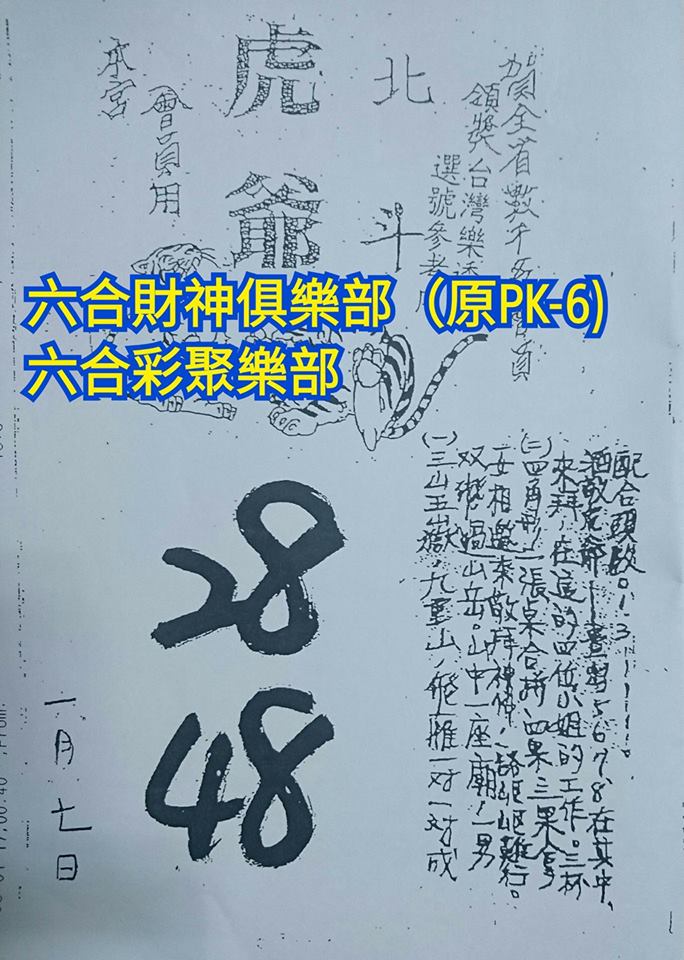 賀全省數千名會員
領獎台灣樂透
選號參考用
北斗
虎爺
會員用
本宮
六合財神俱樂部（原PK-6)
六合彩聚樂部
配合頭故。1.3
酒敬虎爺 5678在其中,
來拜,在這的四位小姐的工作。三杯
(二)四角形,一張桌合拼,四果三果拿
女相邀來敬拜神佛,一路崎嶇難行。
双雙過山岳。山中一座廟,一男
(一)三山五嶽,九重山,飛雁一对一对成
28
48
一月七日